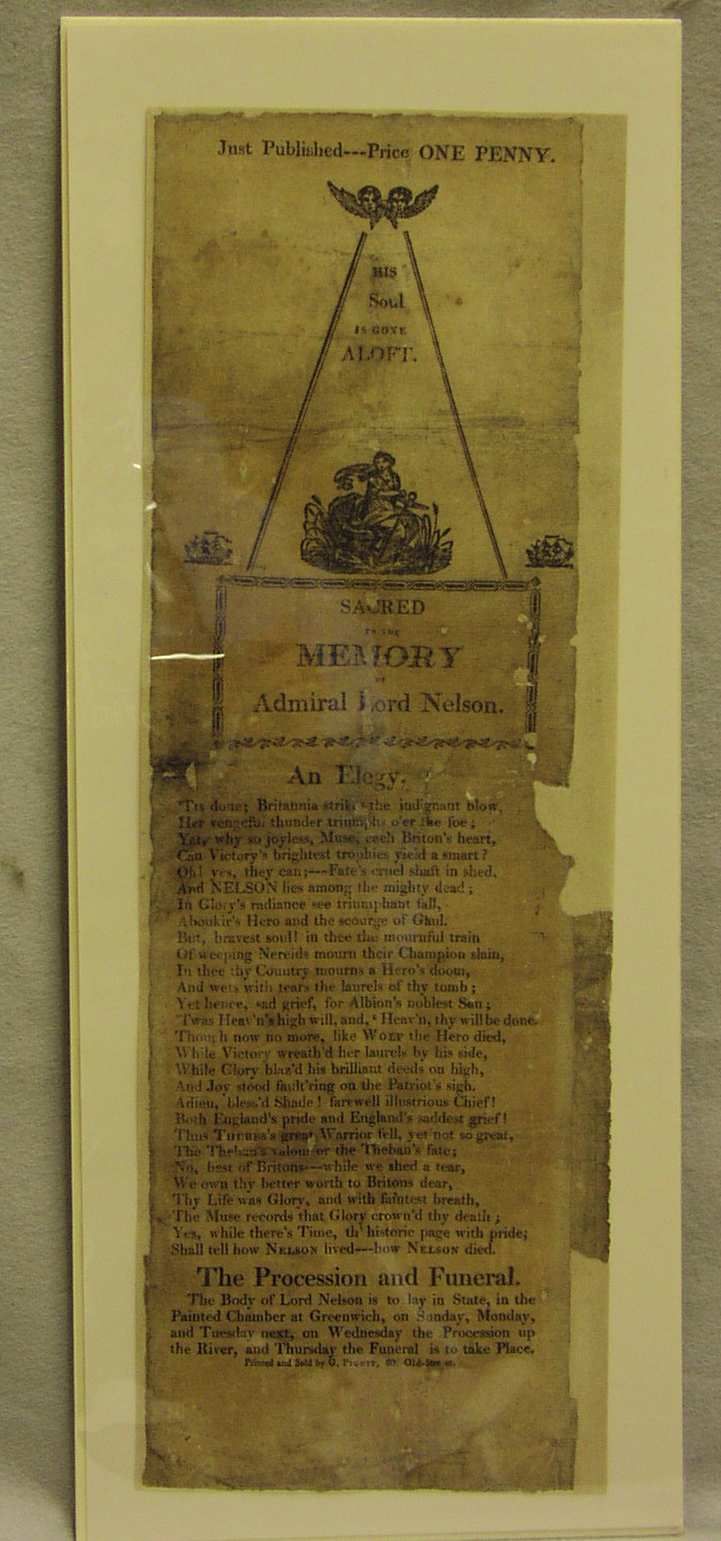 Just Published---Price ONE PENNY.
HIS
Soul
IS GONE
ALOFT.
SACRED
TO THE
MEMORY
OF
Admiral Lord Nelson.
An Elegy.
'Tis done; Britannia strikes the indignant blow,
Her vengeful thunder triumphs o'er the foe;
Yet, why so joyless, Muse, each Briton's heart,
Can Victory's brightest trophies yield a smart?
Oh! yes, they can;---Fate's cruel shaft is shed,
And NELSON lies among the mighty dead;
In Glory's radiance see triumphant fall,
Aboukir's Hero and the scourge of Gaul.
But, bravest soul! in thee the mournful train
Of weeping Nereids mourn their Champion slain,
In thee thy Country mourns a Hero's doom,
And wets with tears the laurels of thy tomb;
Yet hence, sad grief, for Albion's noblest Son;
'Twas Heav'n's high will, and, ' Heav'n, thy will be done.
Though now no more, like WOLF the Hero died,
While Victory wreath'd her laurels by his side,
While Glory blaz'd his brilliant deeds on high,
And Joy stood fault'ring on the Patriot's sigh.
Adieu, bless'd Shade! farewell illustrious Chief!
Both England's pride and England's saddest grief!
Thus great Warrior fell, yet not so great,
The Theban's valour or the Theban's fate;
No, best of Britons---while we shed a tear,
We own thy better worth to Britons dear,
Thy Life was Glory, and with faintest breath,
The Muse records that Glory crown'd thy death;
Yes, while there's Time, th' historic page with pride;
Shall tell how NELSON lived---how NELSON died.
The Procession and Funeral.
The Body of Lord Nelson is to lay in State, in the
Painted Chamber at Greenwich, on Sunday, Monday,
and Tuesday next, on Wednesday the Procession up
the River, and Thursday the Funeral is to take Place.
Printed and Sold by Old-Street.